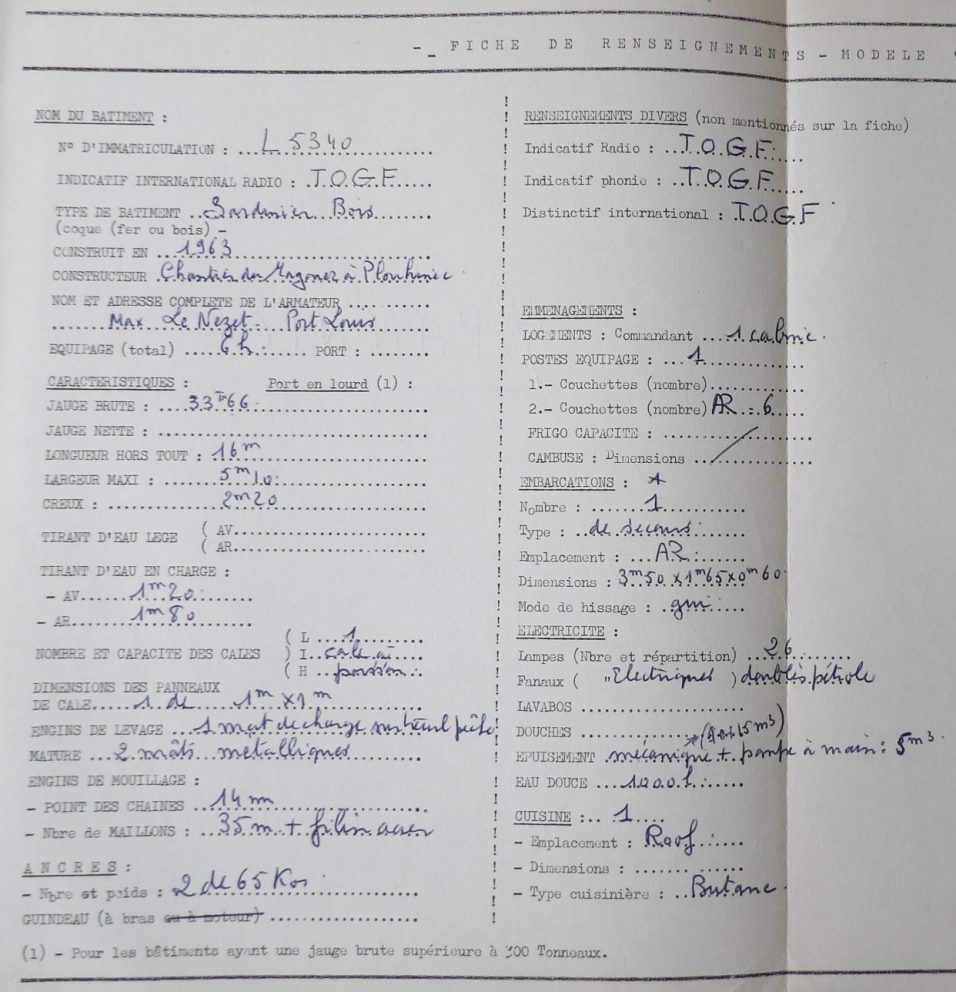 - _ FICHE DE RENSEIGNEMENTS - MODELE
NOM DU BATIMENT :
N° D'IMMATRICULATION : ...L 5340
INDICATIF INTERNATIONAL RADIO : T.O.G.F.....
TYPE DE BATIMENT ..Sardinier Bois.......
(coque (fer ou bois) -
CONSTRUIT EN ...1963
CONSTRUCTEUR .Chantier du Magouer à Plouhinec.
NOM ET ADRESSE COMPLETE DE L'ARMATEUR ....
.......Max Le Nezet. Port Louis
EQUIPAGE (total) ....6 h.:..... PORT : ........
CARACTERISTIQUES : Port en lourd (1) :
JAUGE BRUTE : ....33 Tx 66.
JAUGE NETTE : ...................................
LONGUEUR HORS TOUT : .16 m
LARGEUR MAXI : .......5 m 10.
CREUX : ..............2m20
TIRANT D'EAU LEGE ( AV...........................
( AR...........................
TIRANT D'EAU EN CHARGE :
- AV.......1m20.
- AR.......1m 80
NOMBRE ET CAPACITE DES CALES ( L ....1..........
) I..cale à....
( H ..poisson..
DIMENSIONS DES PANNEAUX
DE CALE.....1 de 1m x 1m
ENGINS DE LEVAGE .1 mat de charge sur treuil pêche
MATURE ...2 mâts metalliques
ENGINS DE MOUILLAGE :
- POINT DES CHAINES ..14 mm
- Nbre de MAILLONS : ..35 m + filin acier
ANCRES :
- Nbre et poids : 2 de 65 Kos
GUINDEAU (à bras ou à moteur) ...................
(1) - Pour les bâtiments ayant une jauge brute supérieure à 300 Tonneaux.
RENSEIGNEMENTS DIVERS (non mentionnés sur la fiche)
Indicatif Radio : ..T.O.G.F.....
Indicatif phonie : ..T.O.G.F....
Distinctif international : T.O.G.F
EMMENAGEMENTS :
LOGEMENTS : Commandant ....1 cabine.
POSTES EQUIPAGE : ...1
1.- Couchettes (nombre)............
2.- Couchettes (nombre) AR : 6....
FRIGO CAPACITE : ..................
CAMBUSE : Dimensions ..............
EMBARCATIONS : 1
Nombre : .......1
Type : ..de secours.
Emplacement : ...AR.
Dimensions : 3m50 x 1m65 x 0m60
Mode de hissage : .gui.....
ELECTRICITE :
Lampes (Nbre et répartition) ...26
Fanaux ( "Electriques ) doublés pétrole
LAVABOS ......................
DOUCHES ......................
EPUISEMENT .mécanique + pompe à main : 5m3.
EAU DOUCE ....1000 l.
CUISINE :.. 1....
- Emplacement : Roof.....
- Dimensions : ........ ......
- Type cuisinière : ..Butane.